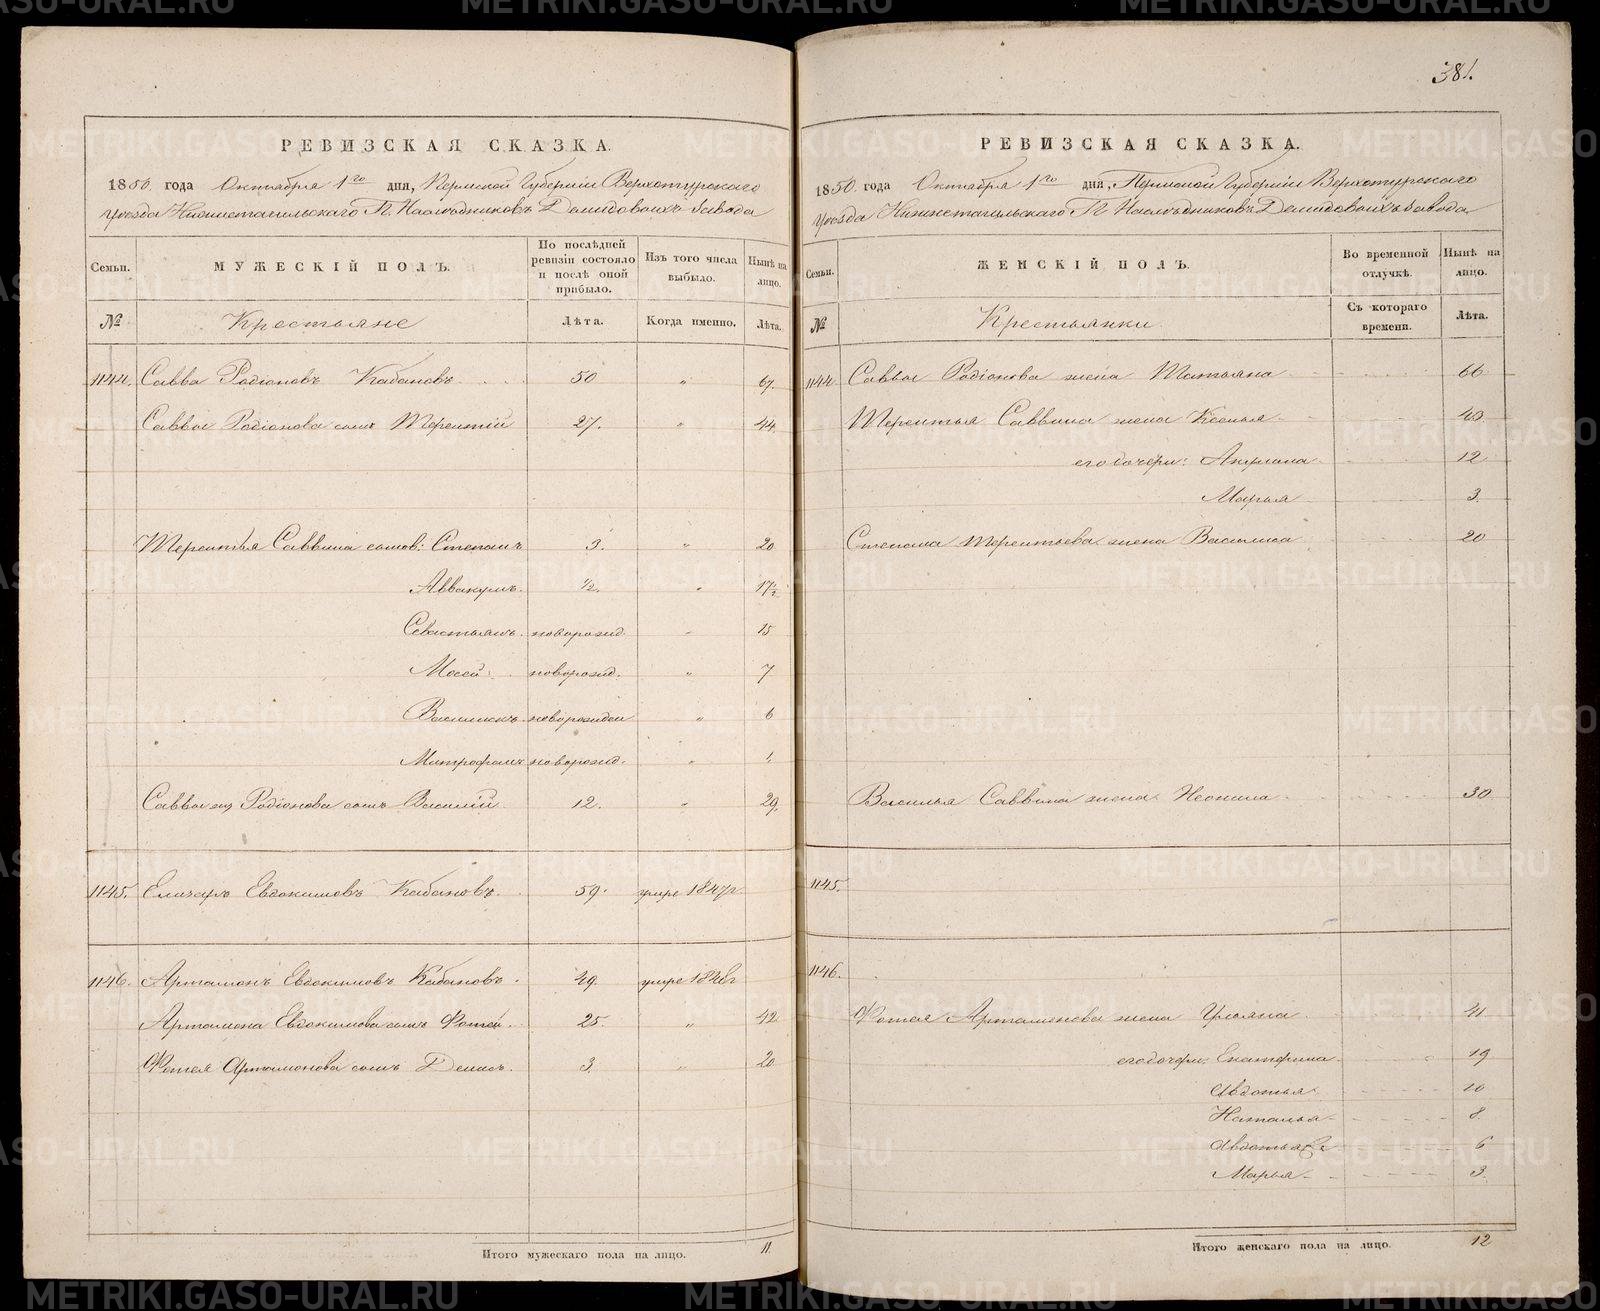 РЕВИЗСКАЯ СКАЗКА.
1850. года Октября 1го дня, Пермской Губерніи Верхотурскаго
уѣзда Нижнетагильскаго Гг. Наслѣдниковъ Демидовыхъ завода
Семьи.
МУЖЕСКІЙ ПОЛЪ.
По послѣдней ревизіи состояло и послѣ оной прибыло.
Изъ того числа выбыло.
Нынѣ на лицо.
№ Крестьяне Лѣта. Когда именно. Лѣта.
1144. Савва Родіоновъ Кабановъ 50 „ 67.
Саввы Родіонова сынъ Терентій 27. „ 44.
Терентья Саввина сынов: Степанъ 3. „ 20
Аввакумъ. ½. „ 17½
Севастьянъ. новорожд. „ 15
Мосей новорожд. „ 7
Василискъ. новорожден „ 6
Митрофанъ новорожд. „ 1.
Саввы Родіонова сынъ Василій 12. „ 29.
1145. Елизаръ Евдокимовъ Кабановъ. 59. умре 1847г
1146. Артамонъ Евдокимовъ Кабановъ. 49. умре 1848г
Артамона Евдокимова сынъ Фотей. 25. „ 42
Фотея Артамонова сынъ Денисъ. 3. „ 20
Итого мужескаго пола на лицо. 11.
381.
РЕВИЗСКАЯ СКАЗКА.
1850 года Октября 1го дня, Пермской Губерніи Верхотурскаго
уѣзда Нижнетагильскаго Гг Наслѣдниковъ Демидовыхъ завода
Семьи.
ЖЕНСКІЙ ПОЛЪ.
Во временной отлучкѣ.
Нынѣ на лицо.
№ Крестьянки Съ котораго времени. Лѣта.
1144 Саввы Родіонова жена Татьяна 66
Терентья Саввина жена Ксенья 43
его дочери: Акулина 12
Марья 3.
Степана Терентьева жена Василиса 20
Василья Саввина жена Неонила 30
1145.
1146.
Фотея Артамонова жена Ульяна 41
его дочери: Екатерина 19
Авдотья 10
Наталья 8
Авдотья 2я 6
Марья 3.
Итого женскаго пола на лицо. 12
METRIKI.GASO-URAL.RU